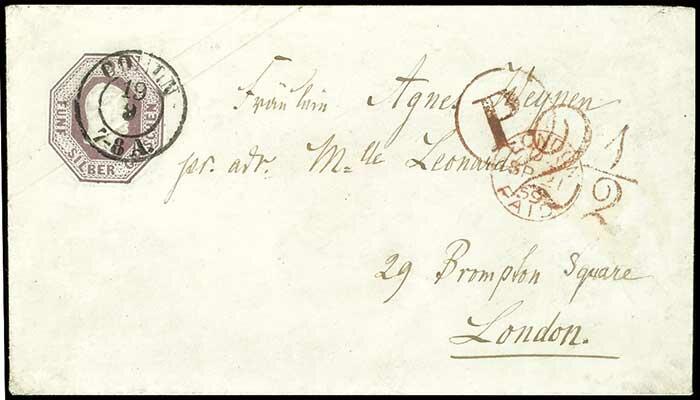 FÜNF SILBER GROSCHEN
19
9
7-8 A
Fräulein Agnes Heynen
pr. adr. Mlle Leonard
29 Brompton Square
London.
P
1/2
LONDON
SP 21
59
PAID